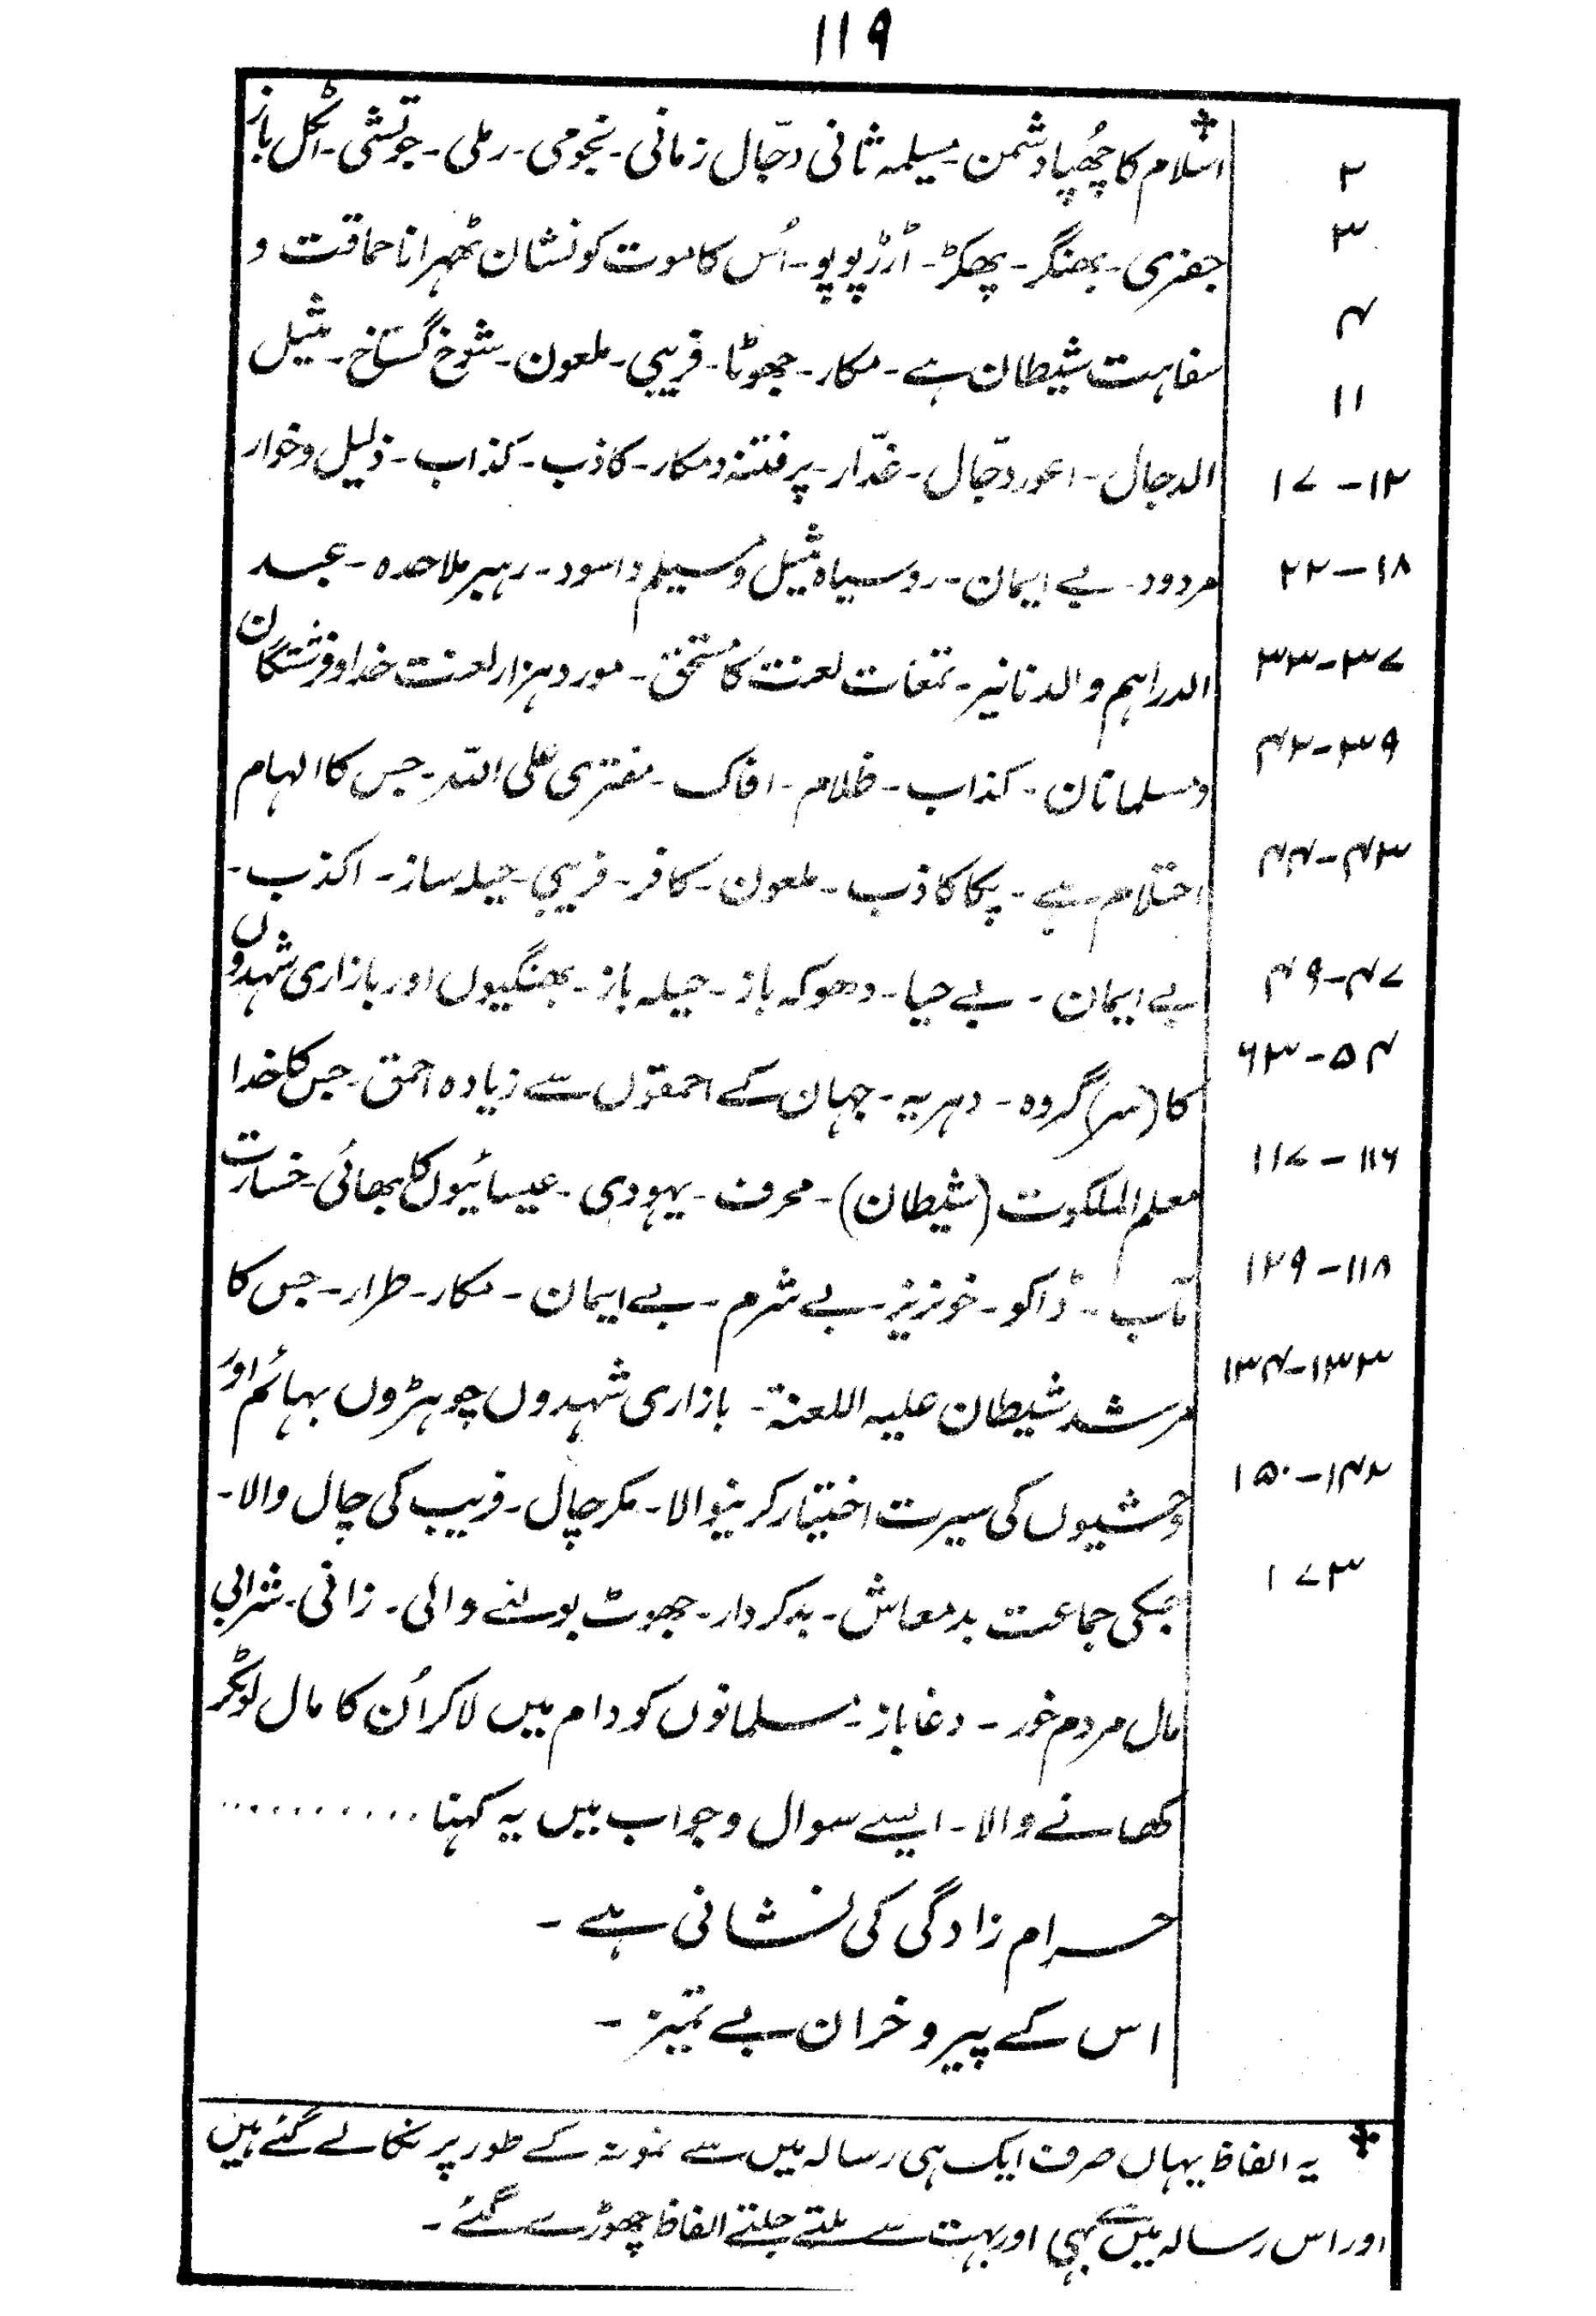 ۱۱۹
۲
۳
۴
۱۱
۱۲-۱۷
۱۸-۲۲
۳۳-۳۷
۳۹-۴۲
۴۳-۴۴
۴۷-۴۹
۵۴-۶۳
۱۱۶-۱۱۷
۱۱۸-۱۲۹
۱۳۳-۱۳۴
۱۴۲-۱۵۰
۱۷۳
اسلام کا چُھپا دشمن۔ مسیلمہ ثانی دجّال زمانی۔ نجومی۔ رملی۔ جوتشی۔ اٹکل باز
جفری۔ بھنگر۔ پھکڑ۔ ارڑپوپو۔ اُس کا موت کو نشان ٹھہرانا حماقت و
سفاہت شیطان ہے۔ مکار۔ جھوٹا۔ فریبی۔ ملعون۔ شوخ گستاخ۔ مثیل
الدجال۔ اعور دجّال۔ غدّار۔ پرفتنہ و مکار۔ کاذب۔ کذاب۔ ذلیل وخوار
مردود۔ بے ایمان۔ روسیاہ مثیل مسیلمہ و اسود۔ رہبر ملاحدہ۔ عبد
الدراہم والدنانیر۔ تمغات لعنت کا مستحق۔ مورد ہزار لعنت خدا و فرشتگان
ومسلمانان۔ کذاب۔ ظلام۔ افاک۔ مفتری علی اللہ۔ جس کا الہام
احتلام ہے۔ پکا کاذب۔ ملعون۔ کافر۔ فریبی۔ حیلہ ساز۔ اکذب۔
بے ایمان۔ بے حیا۔ دھوکہ باز۔ حیلہ باز۔ بھنگیوں اور بازاری شہدوں
کا (سر) گروہ۔ دہریہ۔ جہان کے احمقوں سے زیادہ احمق۔ جس کا خدا
معلم الملکوت (شیطان)۔ محرف۔ یہودی۔ عیسائیوں کا بھائی۔ خسارت
مآب۔ ڈاکو۔ خونریز۔ بے شرم۔ بے ایمان۔ مکار۔ طرار۔ جس کا
مرشد شیطان علیہ اللعنۃ۔ بازاری شہدوں چوہڑوں بہائم اور
وحشیوں کی سیرت اختیار کرنیوالا۔ مکر چال۔ فریب کی چال والا۔
جسکی جماعت بدمعاش۔ بدکردار۔ جھوٹ بولنے والی۔ زانی۔ شرابی
مال مردم خور۔ دغاباز۔ مسلمانوں کو دام میں لاکر اُن کا مال لوٹکر
کھانے والا۔ ایسے سوال وجواب میں یہ کہنا ..........
حرام زادگی کی نشانی ہے۔
اس کے پیرو خران بے تمیز۔
یہ الفاظ یہاں صرف ایک ہی رسالہ میں سے نمونہ کے طور پر نکالے گئے ہیں
اور اس رسالہ میں سے بھی اور بہت سے ملتے جلتے الفاظ چھوڑے گئے۔